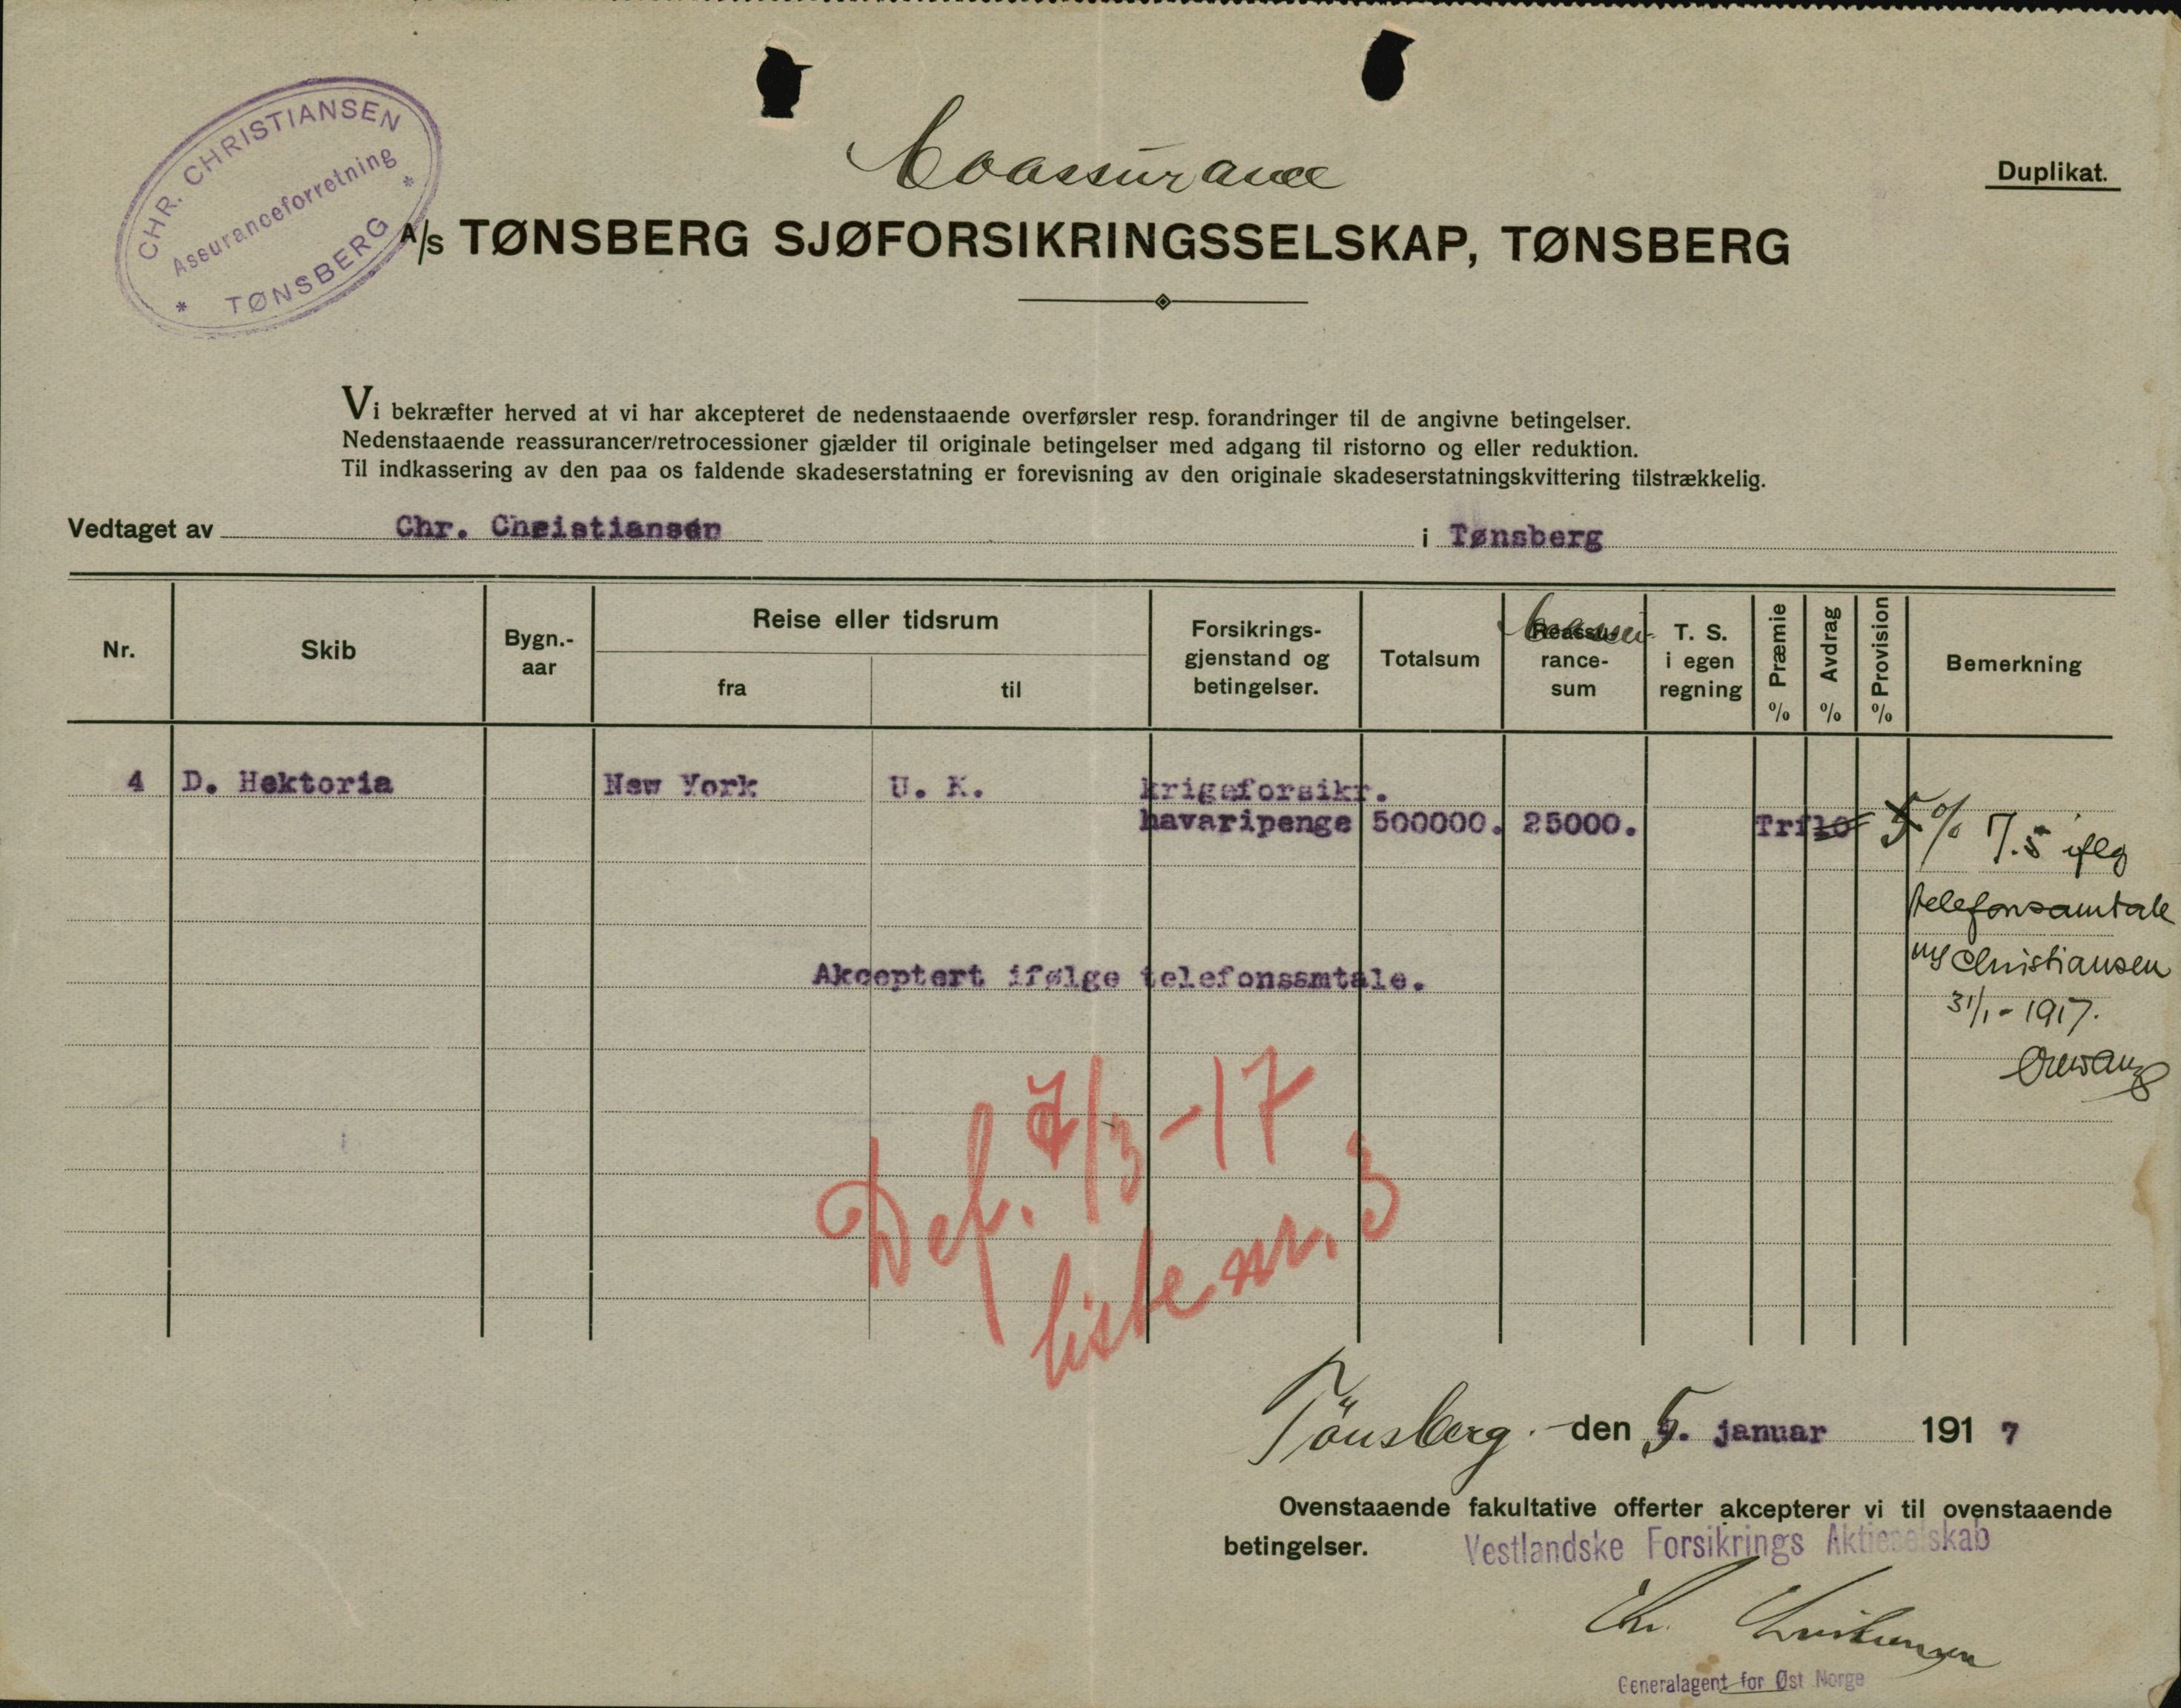 CHR. CHRISTIANSEN
Assuranceforretning
* TØNSBERG *
Coassurance
Duplikat.
A/S TØNSBERG SJØFORSIKRINGSSELSKAP, TØNSBERG
Vi bekræfter herved at vi har akcepteret de nedenstaaende overførsler resp. forandringer til de angivne betingelser.
Nedenstaaende reassurancer/retrocessioner gjælder til originale betingelser med adgang til ristorno og eller reduktion.
Til indkassering av den paa os faldende skadeserstatning er forevisning av den originale skadeserstatningskvittering tilstrækkelig.
Vedtaget av Chr. Christiansen i Tønsberg
Nr.
Skib
Bygn.-
aar
Reise eller tidsrum
fra
til
Forsikrings-
gjenstand og
betingelser.
Totalsum
Reassu-
rance-
sum
T. S.
i egen
regning
Præmie %
Avdrag %
Provision %
Bemerkning
4 D. Hektoria New York U. K. krigsforsikr.
havaripenge 500000. 25000. Trf 10 5% 7.5 iflg
telefonsamtale
m/ Christiansen
31/1-1917.
Akceptert ifølge telefonsamtale.
Def. 7/3-17
liste nr. 3
Tönsberg. den 5. januar 1917
Ovenstaaende fakultative offerter akcepterer vi til ovenstaaende
betingelser. Vestlandske Forsikrings Aktieselskab
Chr. Christiansen
Generalagent for Øst Norge